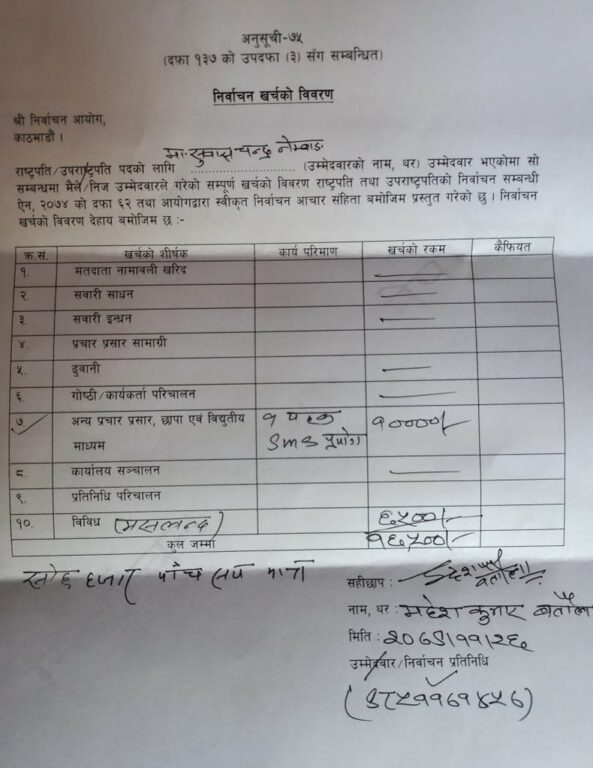 अनुसूची-७५
(दफा १३७ को उपदफा (३) संग सम्बन्धित)
निर्वाचन खर्चको विवरण
श्री निर्वाचन आयोग,
काठमाडौं ।
मा. सुवासचन्द्र नेम्वाङ
राष्ट्रपति/उपराष्ट्रपति पदको लागि ........................ (उम्मेदवारको नाम, थर) उम्मेदवार भएकोमा सो
सम्बन्धमा मैले/निज उम्मेदवारले गरेको सम्पूर्ण खर्चको विवरण राष्ट्रपति तथा उपराष्ट्रपतिको निर्वाचन सम्बन्धी
ऐन, २०७४ को दफा ६२ तथा आयोगद्वारा स्वीकृत निर्वाचन आचार संहिता बमोजिम प्रस्तुत गरेको छु । निर्वाचन
खर्चको विवरण देहाय बमोजिम छ :-
क्र.सं. खर्चको शीर्षक कार्य परिमाण खर्चको रकम कैफियत
१. मतदाता नामावली खरिद
२. सवारी साधन
३. सवारी इन्धन
४. प्रचार प्रसार सामाग्री
५. ढुवानी
६. गोष्ठी/कार्यकर्ता परिचालन
७. अन्य प्रचार प्रसार, छापा एवं विद्युतीय १ पटक १००००/-
माध्यम SMS
८. कार्यालय सञ्चालन
९. प्रतिनिधि परिचालन
१०. विविध (मसलन्द) ६५००/-
कुल जम्मा १६५००/-
सोह्र हजार पाँच सय मात्र
सहीछाप :
नाम, थर : महेश कुमार बर्तौला
मिति : २०७९।११।२६
उम्मेदवार/निर्वाचन प्रतिनिधि